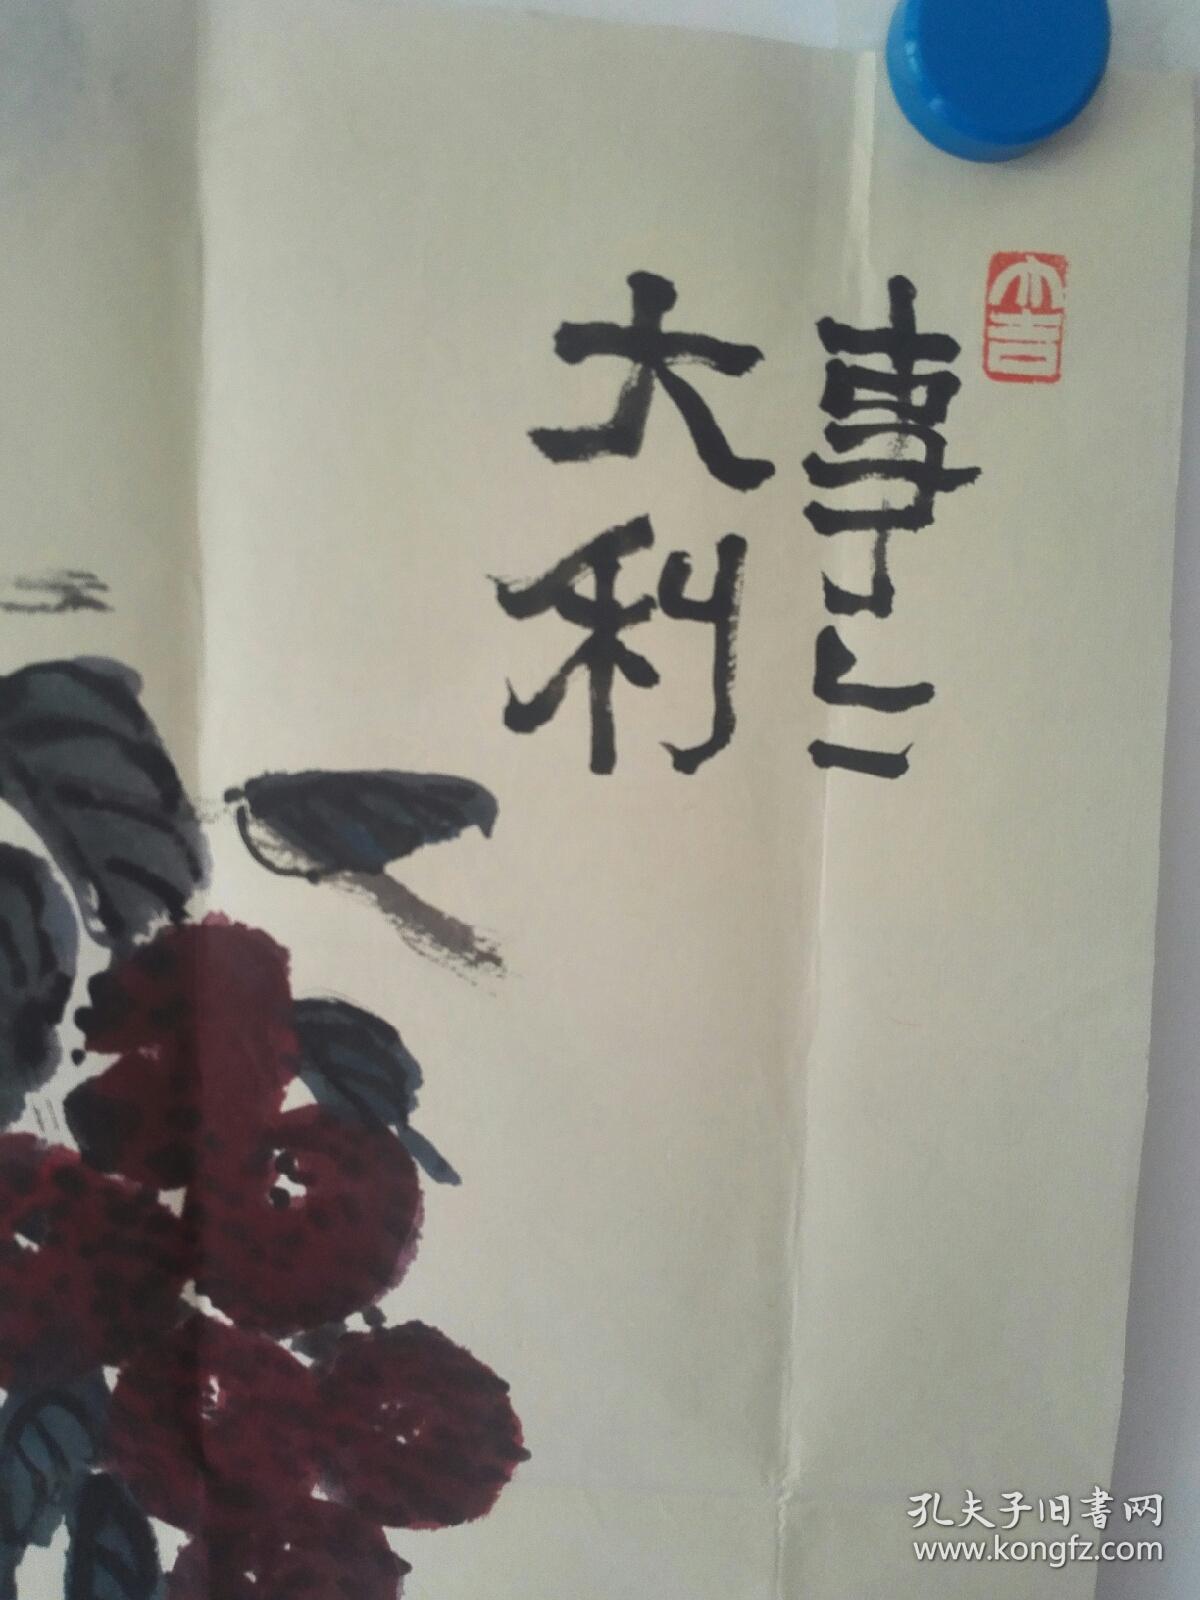 大吉
事〻
大利
孔夫子旧書网
www.kongfz.com